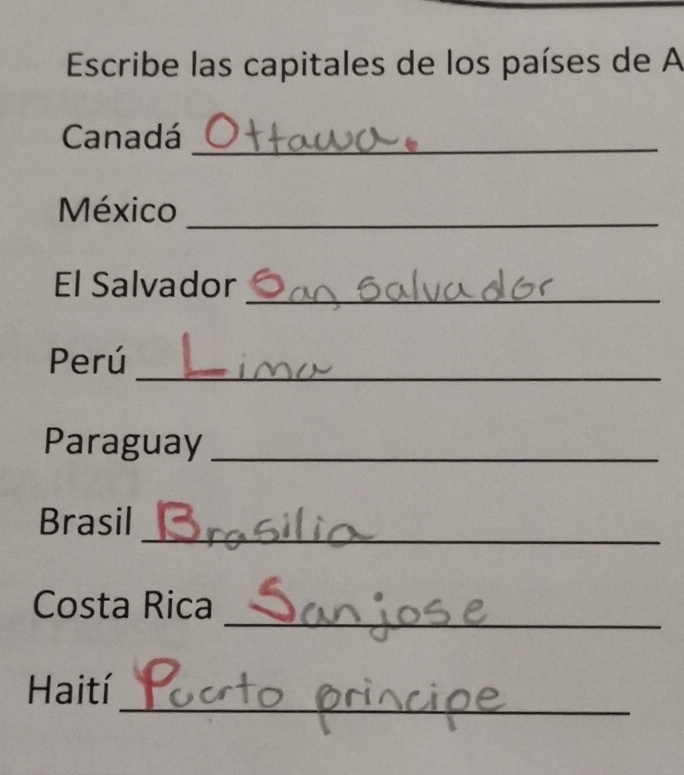 Escribe las capitales de los países de A
Canadá Ottawa.
México
El Salvador San Salvador
Perú Lima
Paraguay
Brasil Brasilia
Costa Rica San jose
Haití Puerto principe